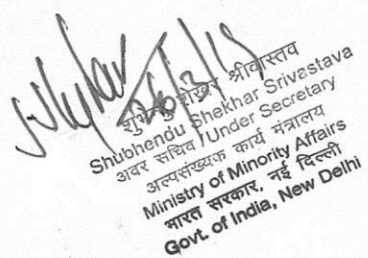 26/3/19
शुभेन्दु शेखर श्रीवास्तव
Shubhendu Shekhar Srivastava
अवर सचिव / Under Secretary
अल्पसंख्यक कार्य मंत्रालय
Ministry of Minority Affairs
भारत सरकार, नई दिल्ली
Govt. of India, New Delhi